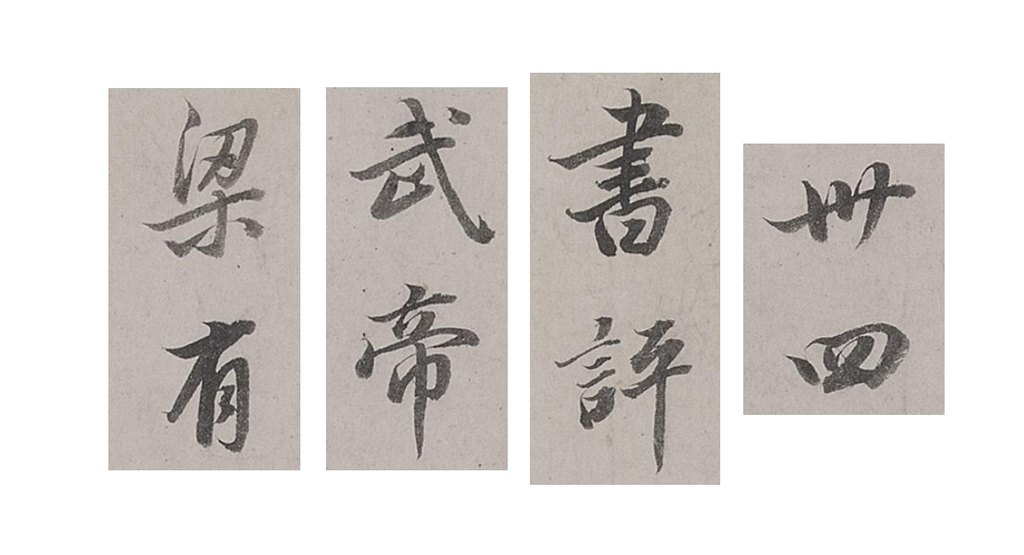 梁有
武帝
書評
卅四